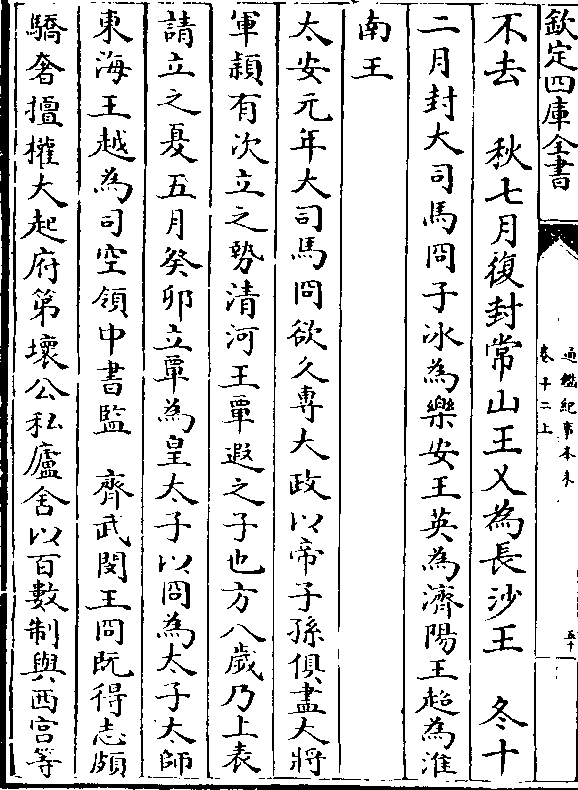 欽定四庫全書
通鑑紀事本末
卷十二上
五十
不去　秋七月復封常山王乂為長沙王　冬十
二月封大司馬冏子冰為樂安王英為濟陽王超為淮
南王
太安元年大司馬冏欲久專大政以帝子孫俱盡大將
軍穎有次立之勢清河王覃遐之子也方八歲乃上表
請立之夏五月癸卯立覃為皇太子以冏為太子太師
東海王越為司空領中書監　齊武閔王冏既得志頗
驕奢擅權大起府第壞公私廬舍以百數制與西宮等